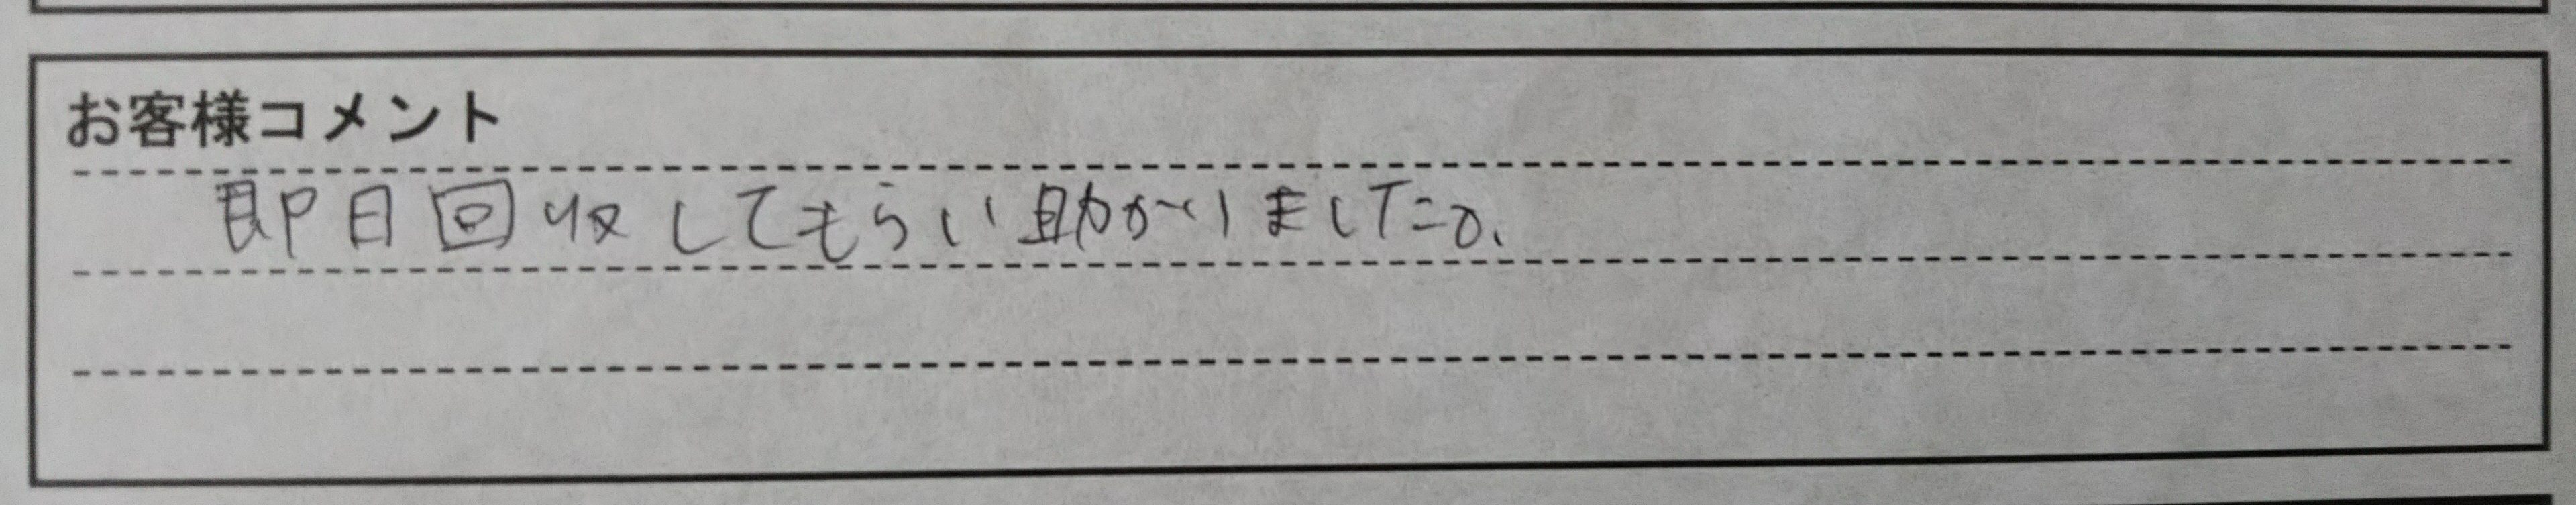 お客様コメント
即日回収してもらい助かりました。